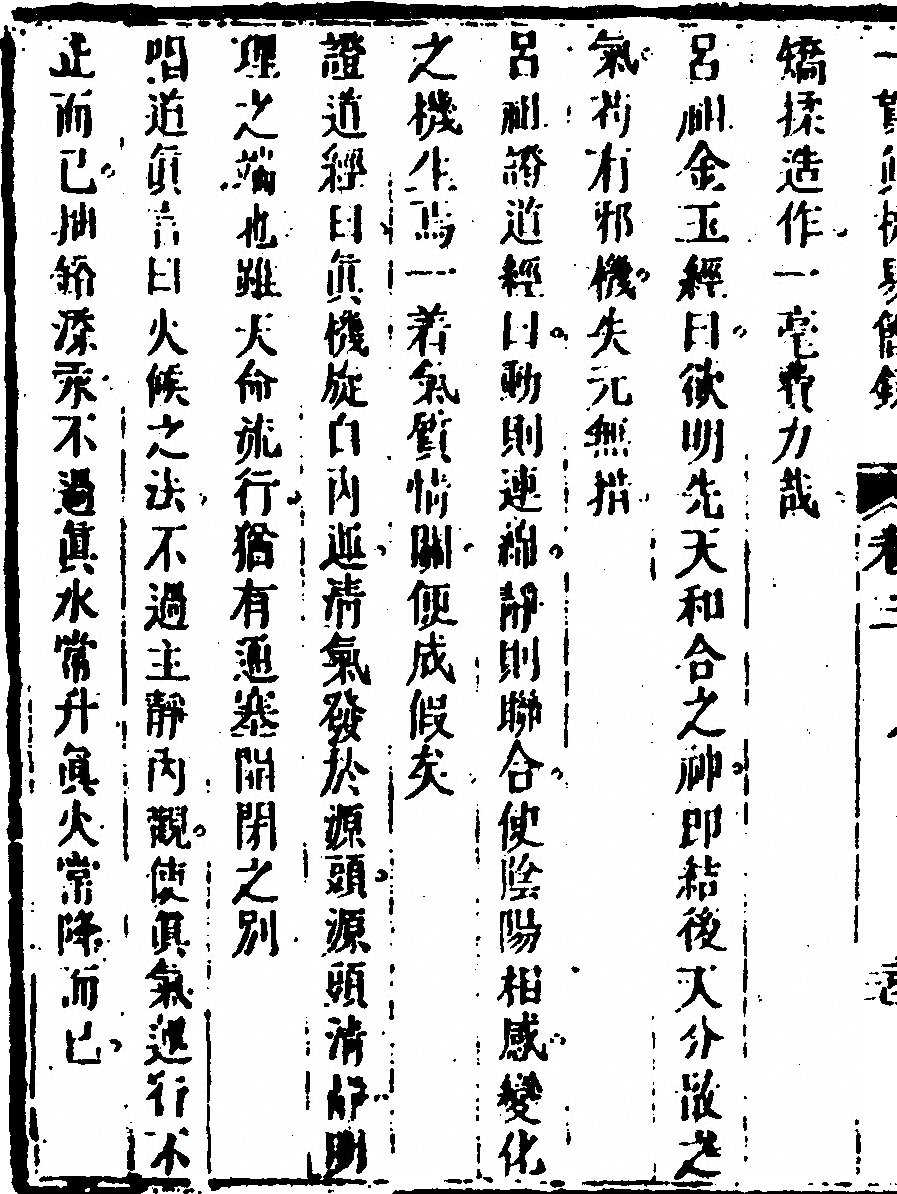 矯揉造作一毫費力哉
呂祖金玉經曰欲明先天和合之神即結後天分散之
氣苟有邪機失元無措
呂祖證道經曰動則連綿靜則聯合使陰陽相感變化
之機生焉一着氣質情關便成假矣
證道經曰眞機旋自內運清氣發於源頭源頭清靜則
理之端也雖天命流行猶有通塞開閉之別
唱道眞言曰火候之法不過主靜內觀使眞氣運行不
止而已抽鉛添汞不過眞水常升眞火常降而已